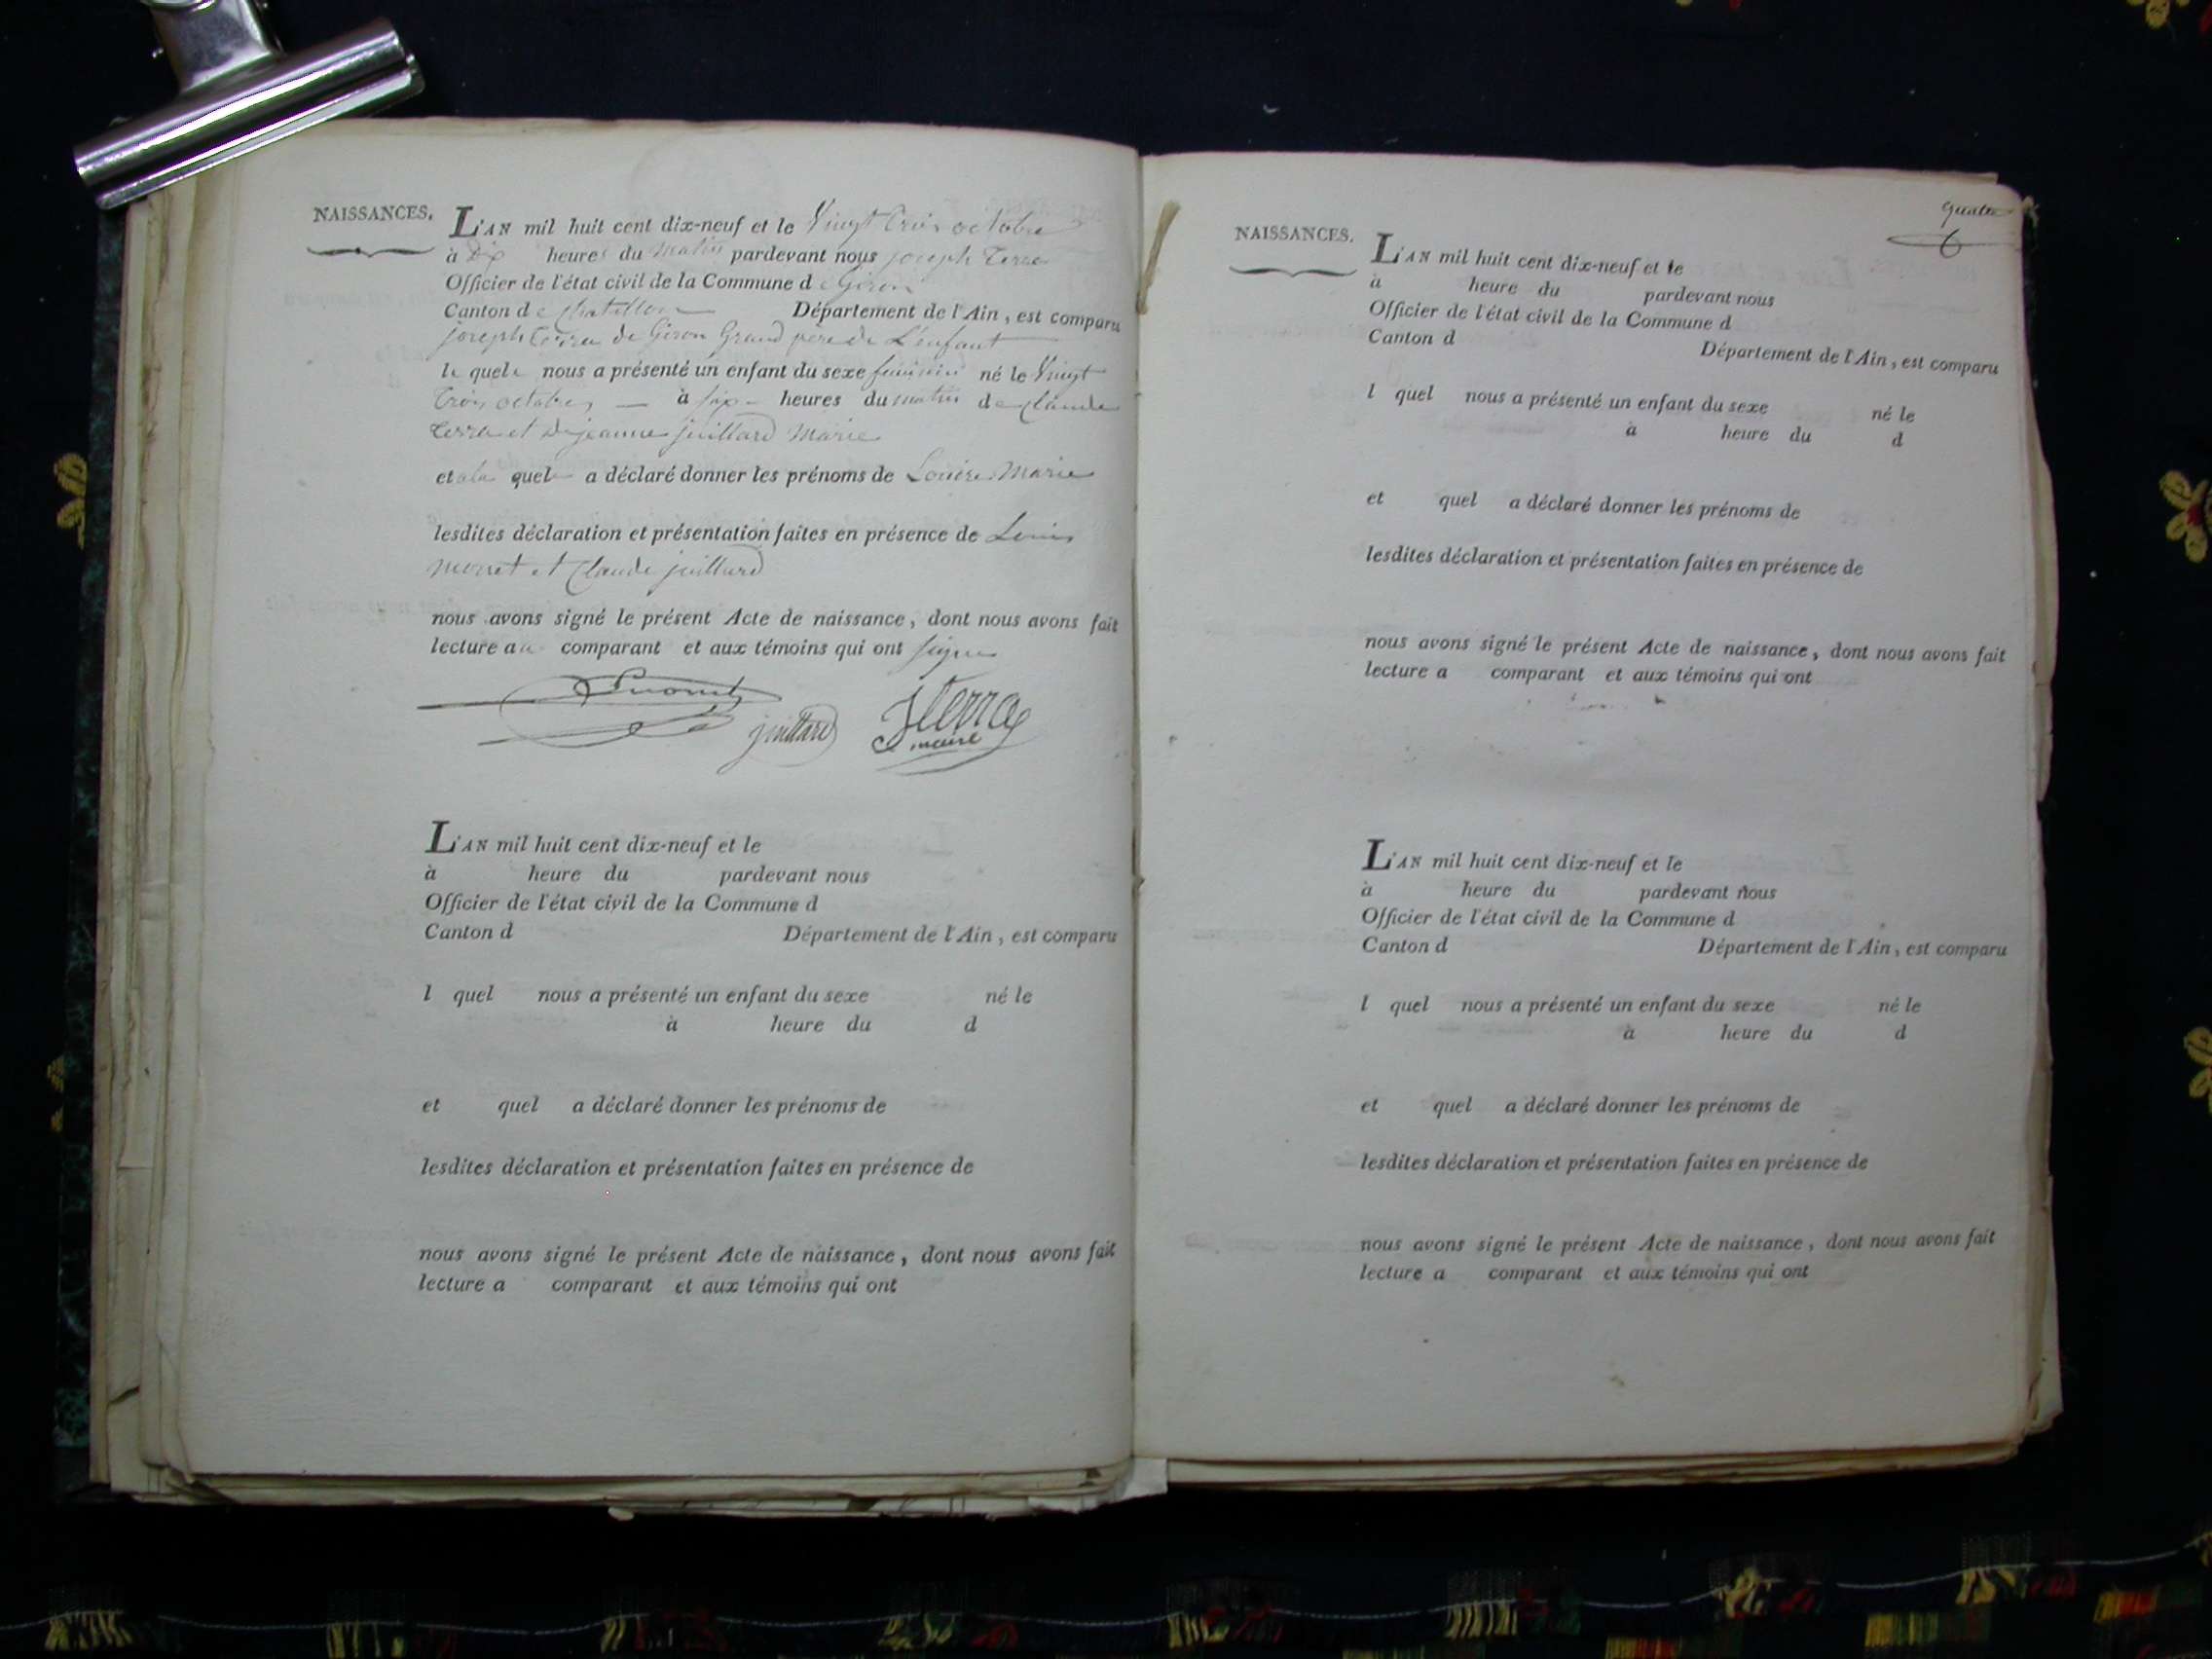 NAISSANCES.
L'AN mil huit cent dix-neuf et le Vingt trois octobre
à Dix heures du matin pardevant nous joseph Terra
Officier de l'état civil de la Commune de Giron
Canton de chatillon Département de l'Ain, est comparu
joseph Terra de Giron Grand pere de L'enfant
le quel nous a présenté un enfant du sexe feminin né le Vingt
trois octobre à six heures du matin de claude
Terra et de jeanne juillard Marie
et quel a déclaré donner les prénoms de Louise Marie
lesdites déclaration et présentation faites en présence de Louis
monet et Claude juillard
nous avons signé le présent Acte de naissance, dont nous avons fait
lecture au comparant et aux témoins qui ont signé
juillard JTerra
maire
L'AN mil huit cent dix-neuf et le
à heure du pardevant nous
Officier de l'état civil de la Commune d
Canton d Département de l'Ain, est comparu
l quel nous a présenté un enfant du sexe né le
à heure du d
et quel a déclaré donner les prénoms de
lesdites déclaration et présentation faites en présence de
nous avons signé le présent Acte de naissance, dont nous avons fait
lecture a comparant et aux témoins qui ont
quatre
NAISSANCES.
L'AN mil huit cent dix-neuf et le
à heure du pardevant nous
Officier de l'état civil de la Commune d
Canton d Département de l'Ain, est comparu
l quel nous a présenté un enfant du sexe né le
à heure du d
et quel a déclaré donner les prénoms de
lesdites déclaration et présentation faites en présence de
nous avons signé le présent Acte de naissance, dont nous avons fait
lecture a comparant et aux témoins qui ont
L'AN mil huit cent dix-neuf et le
à heure du pardevant nous
Officier de l'état civil de la Commune d
Canton d Département de l'Ain, est comparu
l quel nous a présenté un enfant du sexe né le
à heure du d
et quel a déclaré donner les prénoms de
lesdites déclaration et présentation faites en présence de
nous avons signé le présent Acte de naissance, dont nous avons fait
lecture a comparant et aux témoins qui ont